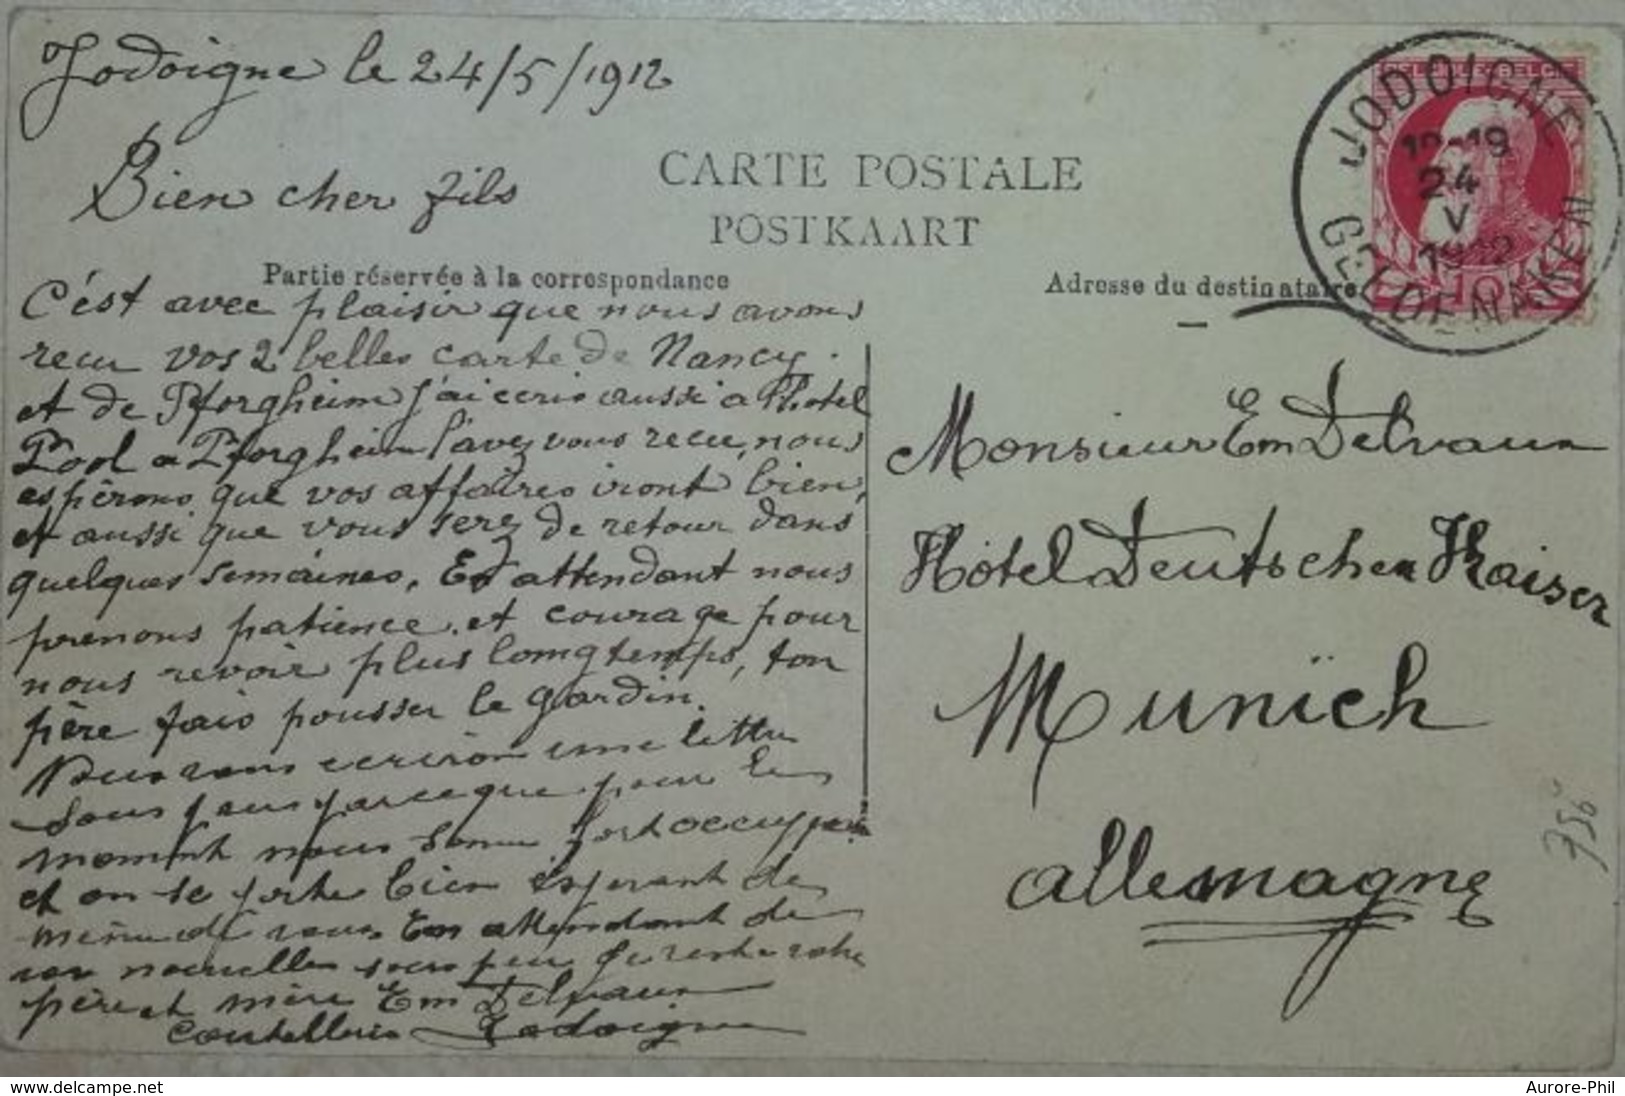 Jodoigne le 24/5/1912
Bien cher fils
CARTE POSTALE
POSTKAART
Partie réservée à la correspondance
C'ést avec plaisir que nous avons
recu vos 2 belles carte de Nancy.
et de Pforgheim j'ai ecris aussi a l'hotel
Post a Pforgheim l'avez vous recu, nous
espèrons que vos affaires iront bien,
et aussi que vous serez de retour dans
quelques semaines. En attendant nous
prenons patience et courage pour
nous revoir plus longtemps, ton
père fais pousser le gardin.
Nous vous ecriron une lettre
sous peu parceque pour le
moment nous somme fort occupper
et on se porte bien esperant de
même de vous. En attendant de
vos nouvelles sous peu je reste votre
père et mère Em Delvaux
Coutellerie Jodoigne
Adresse du destinataire
Monsieur Em Delvaux
Hôtel Deutscher Kaiser
Munich
allemagne
BELGIQUE-BELGIË
JODOIGNE
24
V
1912
GELDENAKEN
10
750
www.delcampe.net
Aurore-Phil